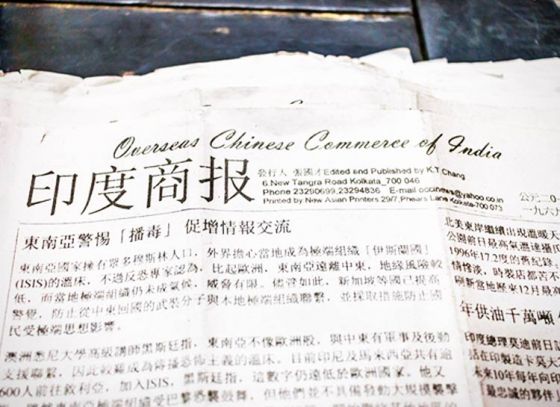 Overseas Chinese Commerce of India
印度商报
發行人 張國才Edited and Published by K.T. Chang
6,New Tangra Road Kolkata_700 046
Phone 23290699,23294836 E-mail occinews@yahoo.co.in
Printed by New Asian Printers 29/7,Phears Lane Kolkata-700 073
東南亞警惕「播毒」促增情報交流
東南亞國家擁有眾多穆斯林人口,
(ISIS)的溫床,不過反恐專家認為,
低,而當地極端組織仍未成氣候,
警覺,防止從中東回國的武裝分子
民受極端思想影響。
外界擔心當地成為極端組織「伊斯蘭國」
比起歐洲,東南亞遠離中東,地緣風險較
威脅有限。儘管如此,新加坡等國已提高
與本地極端組織聯繫,並採取措施防止國
澳洲悉尼大學高級講師黑斯廷指,東南亞不像歐洲般,與中東有軍事及後勤
支援聯繫,因此較難成為傳播恐怖主義的溫床。目前印尼及馬來西亞共有逾
600人前往敘利亞,加入ISIS,黑斯廷指,這數字仍遠低於歐洲國家。他又
公元二0一
一九六
北美東岸繼續出現溫暖天
公園前日最高氣溫達攝
1996年17.2度的舊紀錄。
情慘淡,時裝店都苦不
刷新當地歷來12月最高
年供油千萬噸
印度總理莫迪前日訪
未來10年每年向印